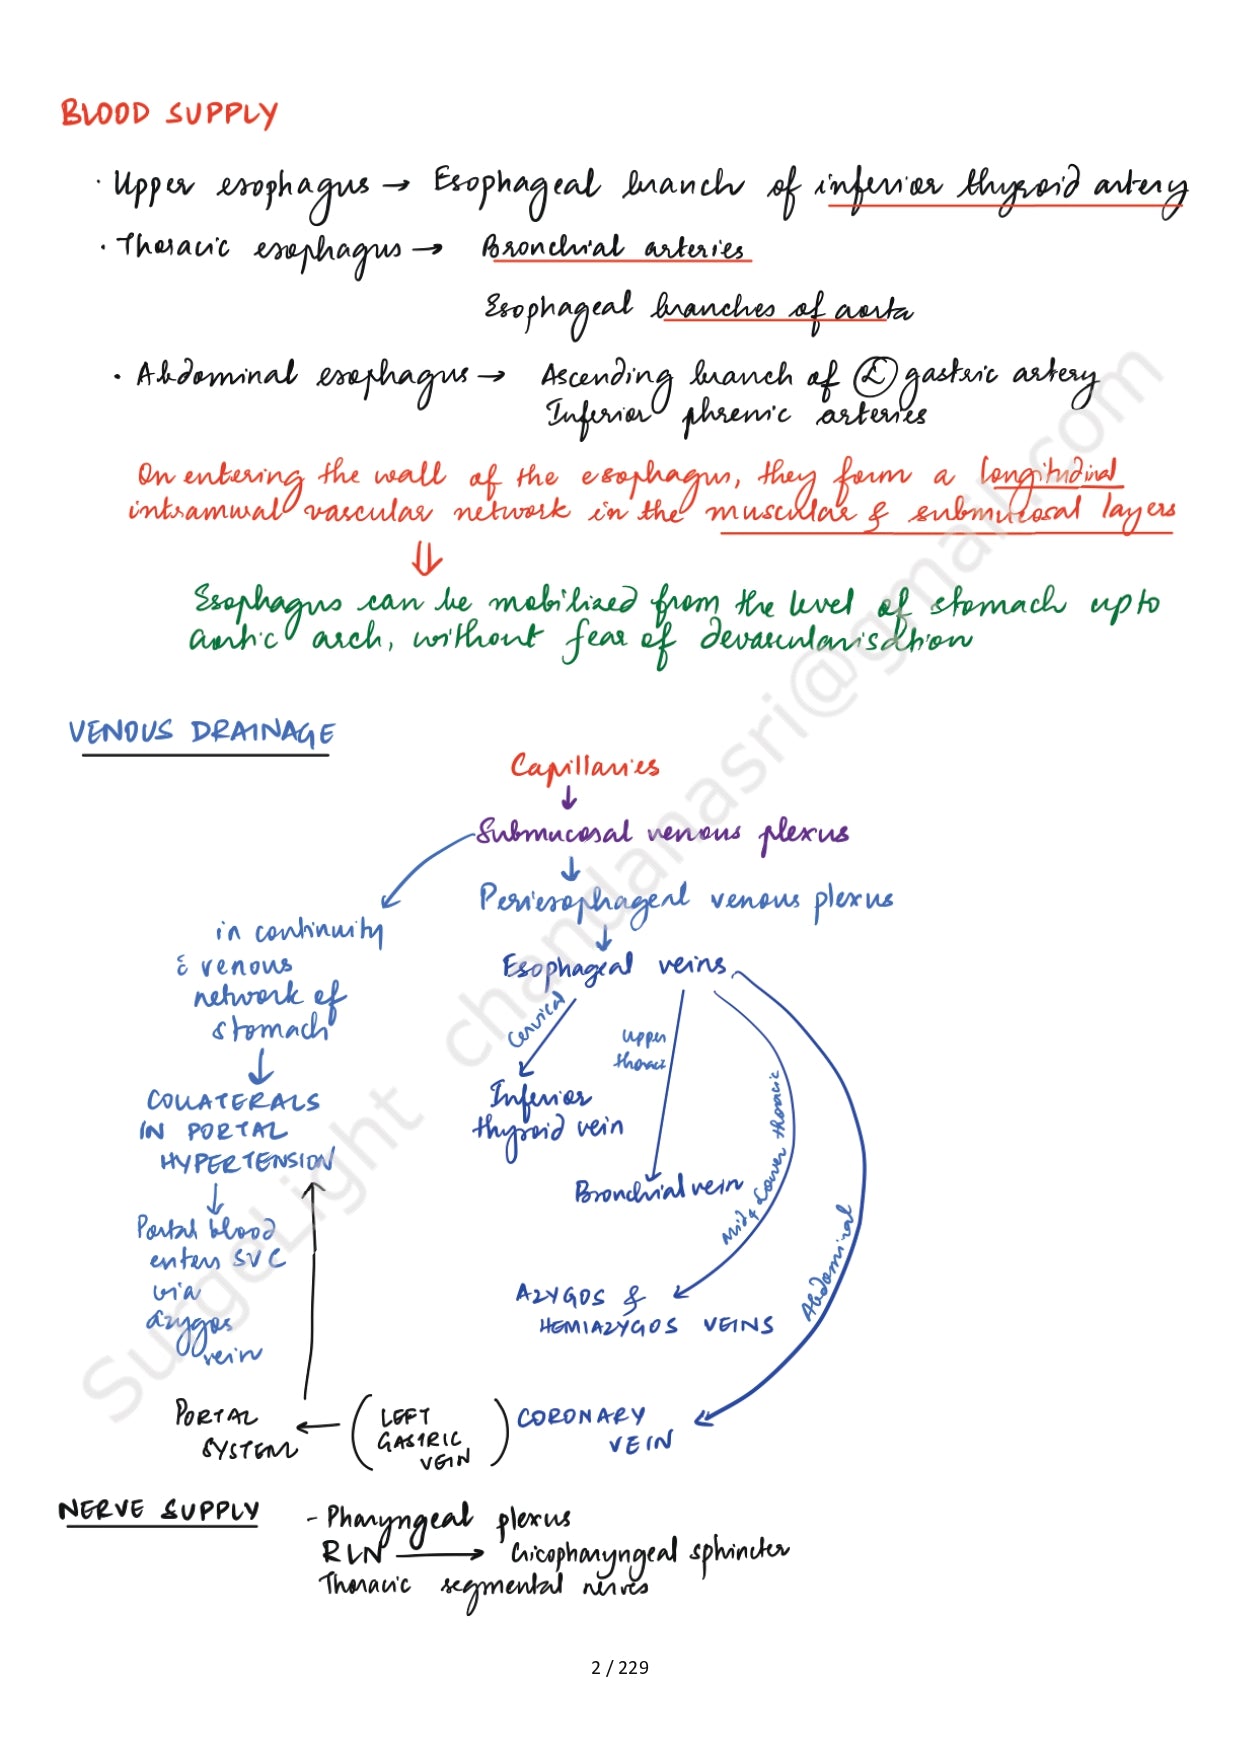 BLOOD SUPPLY
· Upper esophagus → Esophageal branch of inferior thyroid artery
· Thoracic esophagus → Bronchial arteries
Esophageal branches of aorta
· Abdominal esophagus → Ascending branch of Ⓛ gastric artery
Inferior phrenic arteries
On entering the wall of the esophagus, they form a longitudinal
intramural vascular network in the muscular & submucosal layers
⇓
Esophagus can be mobilized from the level of stomach upto
aortic arch, without fear of devascularisation
VENOUS DRAINAGE
Capillaries
↓
Submucosal venous plexus
↓
Periesophageal venous plexus
↓
Esophageal veins
in continuity
c̄ venous
network of
stomach
↓
COLLATERALS
IN PORTAL
HYPERTENSION
↓
Portal blood
enters SVC
via
azygos
vein
Cervical
Inferior
thyroid vein
Upper
thoracic
Bronchial vein
Mid & Lower thoracic
AZYGOS &
HEMIAZYGOS VEINS
Abdominal
CORONARY
VEIN
(LEFT
GASTRIC
VEIN)
←
PORTAL
SYSTEM
NERVE SUPPLY
- Pharyngeal plexus
RLN → Cricopharyngeal sphincter
Thoracic segmental nerves
SurgeLight chandanasri@gmail.com
2 / 229